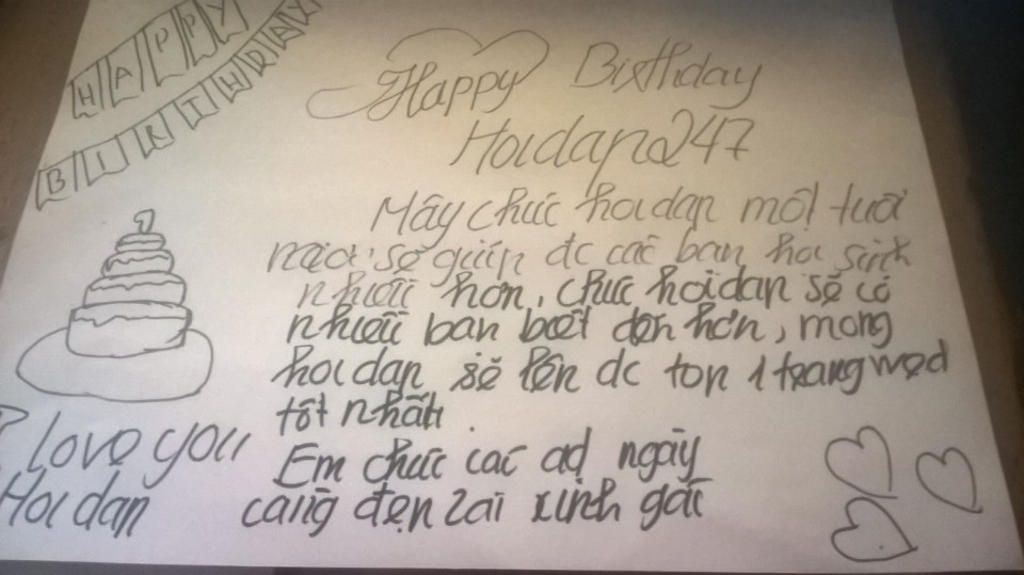 HAPPY
BIRTHDAY
Happy Birthday
Hoidap247
Mấy chúc hoidap một tuổi
mới, sẽ giúp đc các bạn học sinh
nhiều hơn, chúc hoidap sẽ có
nhiều bạn biết đến hơn, mong
hoidap sẽ lên đc top 1 trang wed
tốt nhất.
I love you
Hoidap
Em chúc các ad ngày
càng đẹp zai xinh gái
1